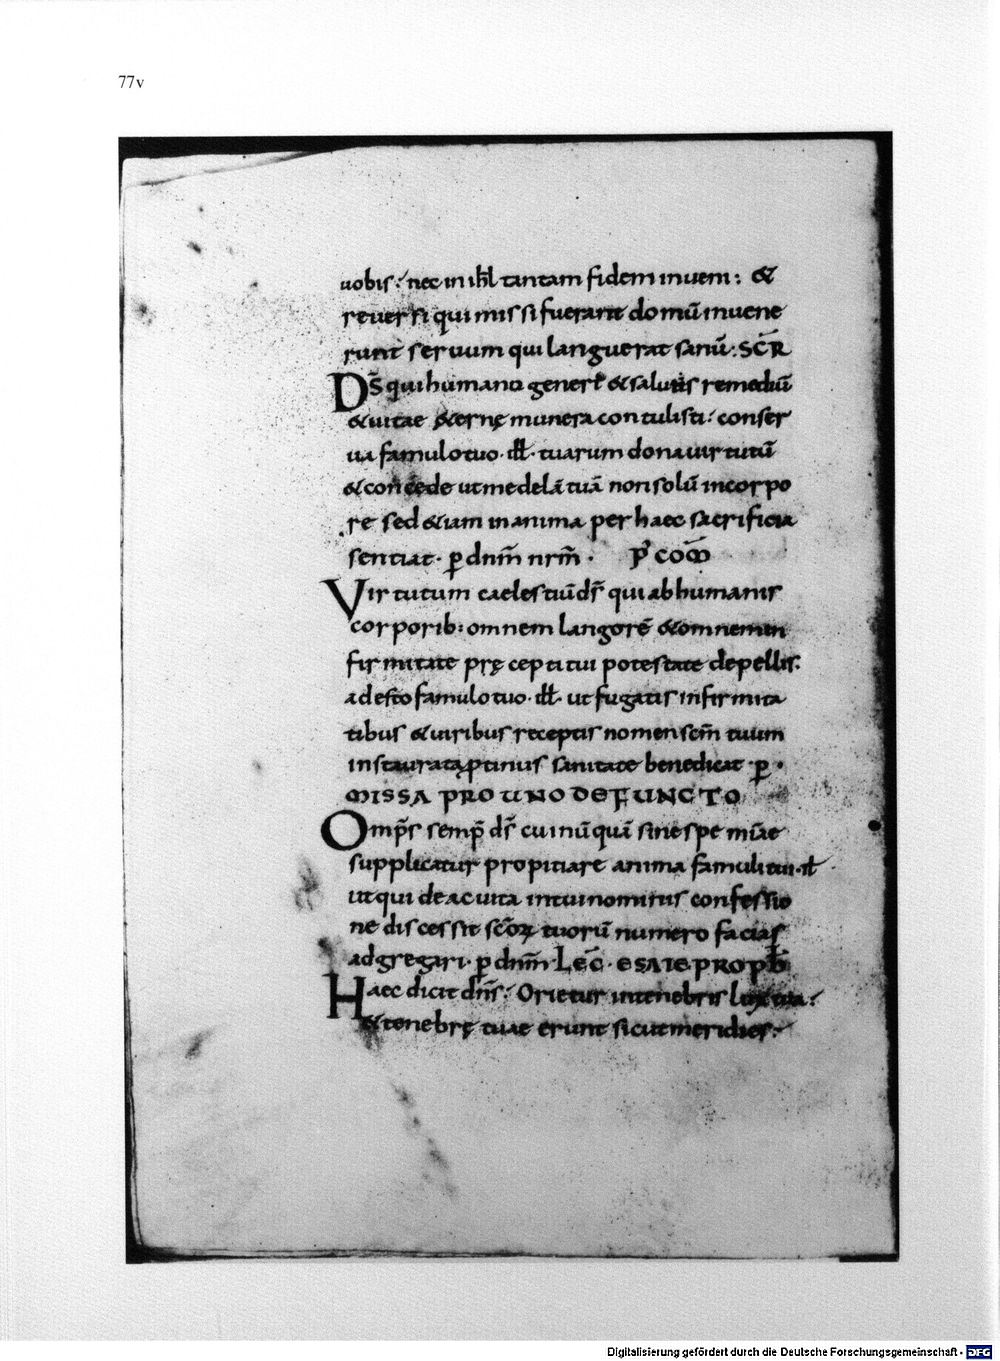 77v
uobis؛ nec in ihl̄ tantam fidem inueni: &
reuersi qui missi fuerant domū inuene
runt seruum qui languerat sanū. SCR̄
D̄s qui humano generi & salutis remediū
& uitae &ernę munera contulisti؛ conser
ua famulo tuo· ill̄· tuarum dona uirtutū
& concede ut medelā tuā non solū in corpo
re sed &iam in anima per haec sacrificia
sentiat· ꝑ dnm̄ nrm̄· P' CŌM
Virtutum caelestiū ds̄ qui ab humanis
corporib: omnem langorē & omnem in
firmitatē pręcepti tui potestate depellis.
adesto famulo tuo· ill̄· ut fugatis infirmita
tibus & uiribus receptis nomen scm̄ tuum
instaurata ꝓtinus sanitate benedicat· ꝑ·
MISSA PRO UNO DEFUNCTO
Omp̄s semp̄ ds̄ cui nūquā sine spe mīae
supplicatur propitiare anima famuli tui· ill̄
ut qui de ac uita in tui nominis confessio
ne discessit sc̄oꝝ tuorū numero facias
adgregari· ꝑ dnm̄· LEC̄· ESAIE PROPH̄
Haec dicit dn̄s؛ Orietur in tenebris lux tua؛
& tenebrę tuae erunt sicut meridies؛
Digitalisierung gefördert durch die Deutsche Forschungsgemeinschaft - DFG